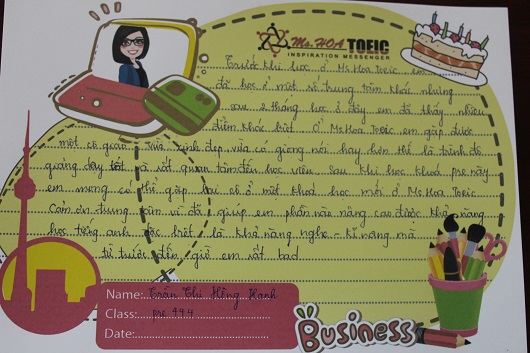 Ms. HOA TOEIC
INSPIRATION MESSENGER
Trước khi học ở Ms Hoa Toeic em
đã học ở một số trung tâm khác nhưng
sau 2 tháng học ở đây em đã thấy nhiều
điểm khác biệt. Ở Ms Hoa Toeic em gặp được
một cô giáo vừa xinh đẹp vừa có giọng nói hay hơn thế là trình độ
giảng dạy tốt và rất quan tâm đến học viên. Sau khi học khoá pre này
em mong có thể gặp lại cô ở một khoá học mới ở Ms Hoa Toeic.
Cảm ơn trung tâm vì đã giúp em phần nào nâng cao được khả năng
học tiếng anh đặc biệt là khả năng nghe - kĩ năng mà
từ trước đến giờ em rất bad
Name: Trần Thị Hồng Hạnh
Class: Pre 444
Date:
Business